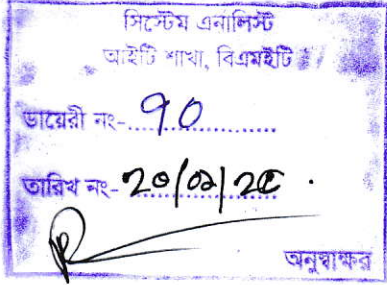 সিস্টেম এনালিস্ট
আইটি শাখা, বিএমইটি
ডায়েরী নং-৭০
তারিখ নং-
অনুস্বাক্ষর